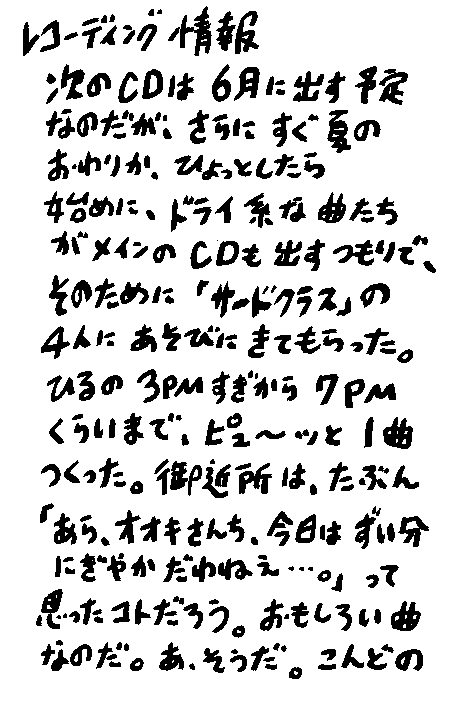 レコーディング情報
次のCDは6月に出す予定
なのだが、さらにすぐ夏の
おわりか、ひょっとしたら
始めに、ドライ系な曲たち
がメインのCDも出すつもりで、
そのために「サードクラス」の
4人にあそびにきてもらった。
ひるの3PMすぎから7PM
くらいまで、ピュ〜ッと1曲
つくった。御近所は、たぶん
「あら、オオキさんち、今日はずい分
にぎやかだわねぇ…。」って
思ったコトだろう。おもしろい曲
なのだ。あ、そうだ。こんどの